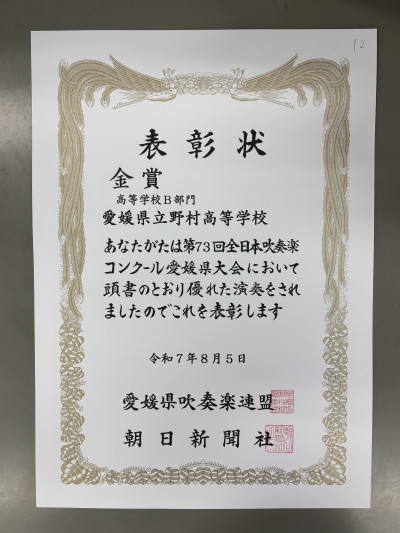 12
表彰状
金賞
高等学校B部門
愛媛県立野村高等学校
あなたがたは第73回全日本吹奏楽
コンクール愛媛県大会において
頭書のとおり優れた演奏をされ
ましたのでこれを表彰します
令和7年8月5日
愛媛県吹奏楽連盟
朝日新聞社